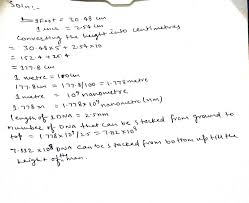 Soln:-
1 Feet = 30.48 cm
1 inch = 2.54 cm
Converting the height into centimetres
= 30.48x5 + 2.54x10
= 152.4 + 25.4
= 177.8 cm
1 metre = 100cm
177.8cm = 177.8/100 = 1.778 metre
1 metre = 10⁹ nanometre
1.778m = 1.778x10⁹ nanometre (nm)
length of DNA = 2.5nm
Number of DNA that can be stacked from ground to
top = 1.778x10⁹/2.5 = 7.112x10⁸
7.112x10⁸ DNA can be stacked from bottom up till the
height of the man.